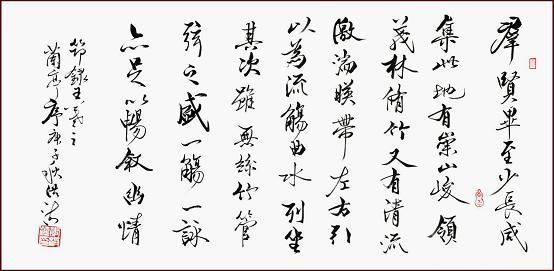 羣賢畢至少長咸
集此地有崇山峻領
茂林脩竹又有清流
激湍暎帶左右引
以為流觴曲水列坐
其次雖無絲竹管
弦之盛一觴一詠
亦足以暢敘幽情
節錄王羲之
蘭亭序庚子秋洪